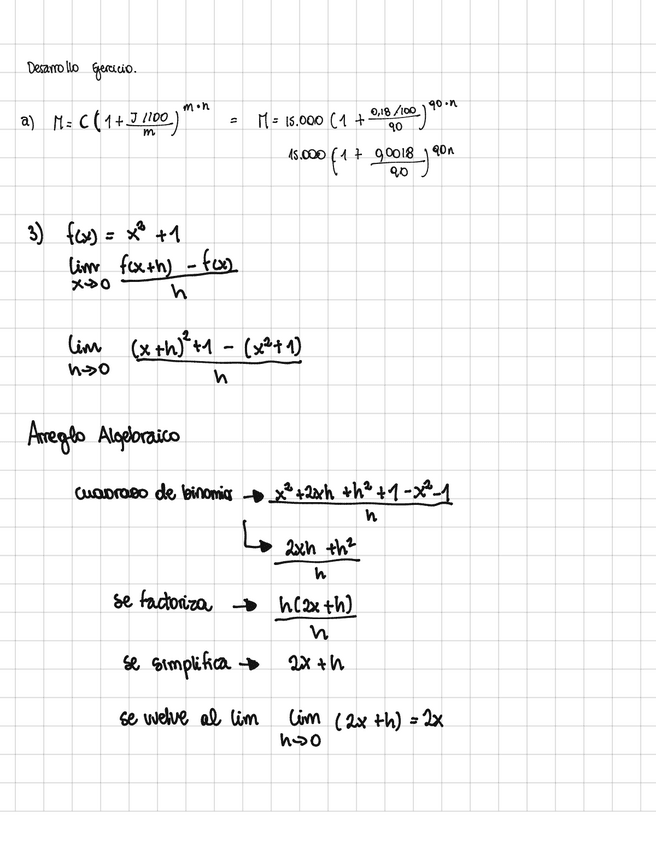 Desarrollo Ejercicio.
a) M = C (1 + J/100 / m)^m·n = M = 15.000 (1 + 0,18/100 / 90)^90·n
15.000 (1 + 0,0018 / 90)^90n
3) f(x) = x² + 1
lim x→0 f(x+h) - f(x) / h
lim h→0 (x+h)² + 1 - (x²+1) / h
Arreglo Algebraico
cuadrado de binomio → x² + 2xh + h² + 1 - x² - 1 / h
↳ 2xh + h² / h
se factoriza → h(2x+h) / h
se simplifica → 2x + h
se vuelve al lim lim h→0 (2x + h) = 2x